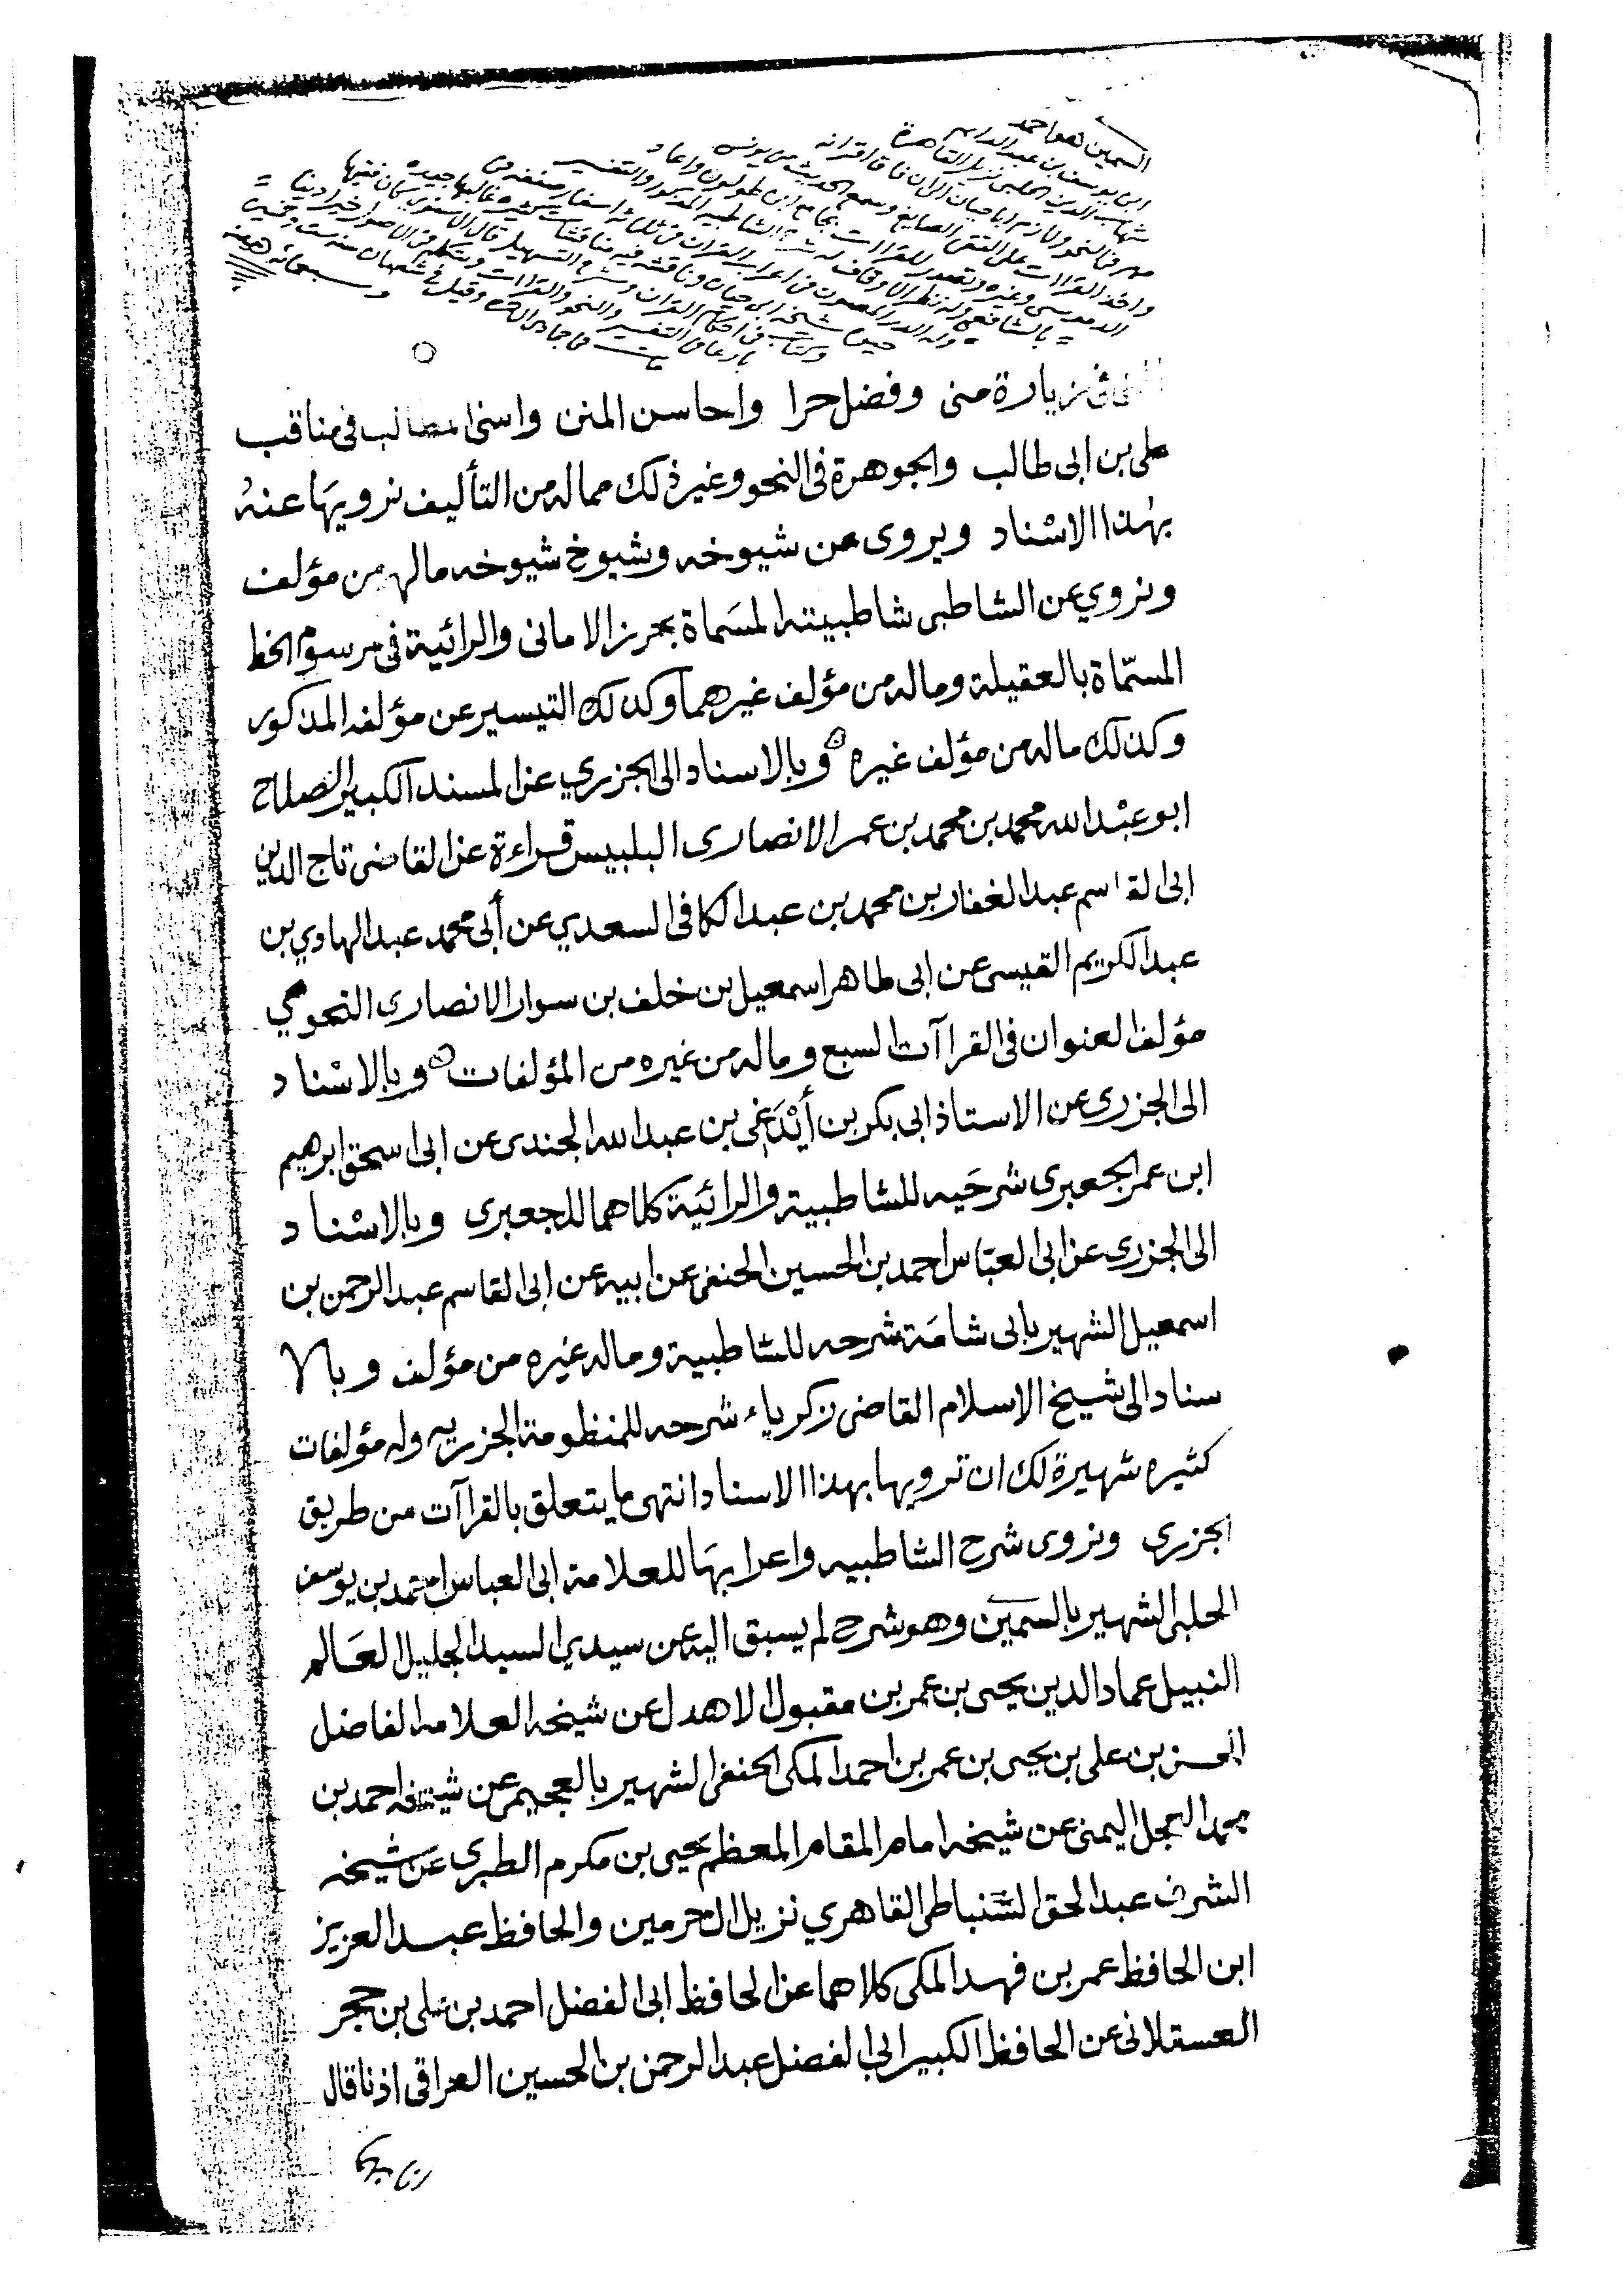 السمين هو احمد
ابن يوسف بن عبد الدايم
شهاب الدين الحلبي نزيل القاهرة
مهر في النحو ولازم ابا حيان الى ان فاق اقرانه
واخذ القراات على التقي الصايغ وسمع الحديث من يونس
الدبوسي وغيره وتصدر للقراات بجامع ابن طولون واعاد
بالشافعي وله نظر الاوقاف له شرح الشاطبيه والتفسير
وله الدر المصون في اعراب القران في ثلاثة اسفار صنفه في
حياة شيخه ابي حيان وناقشه فيه مناقشات كثيره غالبها جيده
وكتاب في احكام القران وشرح التسهيل قال الاسنوي كان فقيها
بارعا في التفسير والنحو والقراات ويتكلم في الاصول خيرا دينا
مات في جمادى الاخره وقيل في شعبان سنه ست وخمسين
وسبعمائه
زيارة منى وفضل حرا واحاسن المنن واسنى المطالب في مناقب
على بن ابى طالب والجوهرة فى النحو وغير ذلك مماله من التأليف نرويها عنه
بهذا الاسناد ويروى عن شيوخه وشيوخ شيوخه مالهم من مؤلف
ونروي عن الشاطبى شاطبيته المسماة بحرز الامانى والرائية فى مرسوم الخط
المسمّاة بالعقيلة وماله من مؤلف غيرهما وكذلك التيسير عن مؤلفه المذكور
وكذلك ماله من مؤلف غيره وبالاسناد الى الجزري عن المسند الكبير الصلاح
ابو عبد الله محمد بن محمد بن عمر الانصارى البلبيس قراءة عن القاضى تاج الدين
ابى القاسم عبد الغفار بن محمد بن عبد الكافى السعدي عن أبى محمد عبد الهاوي بن
عبد الكريم القيسى عن ابى طاهر اسمعيل بن خلف بن سوار الانصارى النحوي
مؤلف العنوان فى القراآت السبع وماله من غيره من المؤلفات وبالاسناد
الى الجزرى عن الاستاذ ابى بكر بن أيْدَغي بن عبد الله الجندى عن ابى اسحق ابرهيم
ابن عمر الجعبرى شرحَيه للشاطبية والرائية كلاهما للجعبرى وبالاسناد
الى الجزرى عن ابى العباس احمد بن الحسين الحنفى عن ابيه عن ابى القاسم عبد الرحمن بن
اسمعيل الشهير بابى شامَة شرحه للشاطبية وماله غيره من مؤلف وبالا
سناد الى شيخ الاسلام القاضى زكرياء شرحه للمنظومة الجزريه وله مؤلفات
كثيره شهيرة لك ان ترويها بهذا الاسناد انتهى ما يتعلق بالقراآت من طريق
الجزرى ونروى شرح الشاطبيه واعرابها للعلامة ابى العباس احمد بن يوسف
الحلبى الشهير بالسمين وهو شرح لم يسبق اليه عن سيدي السيد الجليل العَالم
النبيل عماد الدين يحيى بن عمر بن مقبول الاهدل عن شيخه العلامه الفاضل
الحسن بن على بن يحيى بن عمر بن احمد المكى الحنفى الشهير بالعجيمى عن شيخه احمد بن
محمد العجل اليمنى عن شيخه امام المقام المعظم يحيى بن مكرم الطبرى عن شيخه
الشرف عبد الحق السنباطى القاهري نزيل الحرمين والحافظ عبد العزيز
ابن الحافظ عمر بن فهد المكى كلاهما عن الحافظ ابى الفضل احمد بن على بن حجر
العسقلانى عن الحافظ الكبير ابى الفضل عبد الرحمن بن الحسين العراقى اذنا قال
انا بها